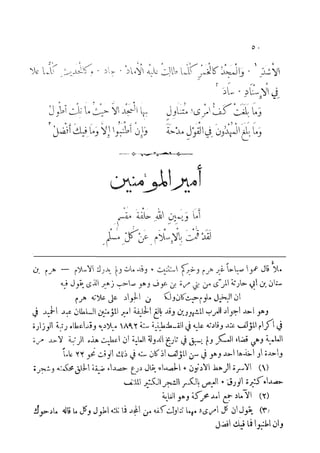 ٥٠
الأشتر . والمجد كالخمر كلّما طالت عليه الآماد . جاد . وكالحديث كلّما علا
في الإسناد . ساد
وما بلغت كفّ امرئ متناول بها المجد الا حيث ما نلت أطول
وما بلغ المهدون في القول مدحة وإن أطنبوا إلا وما فيك أفضل
أمير المؤمنين
أما ويمين الله حلفة مقسم
لقد قمت بالإسلام عن كل مسلم
ملأ قال عموا صباحاً غير هرم وخيركم استثنيت * وقد مات ولم يدرك الاسلام — هرم بن
سنان بن أبي حارثة المرّى من بني مرة بن عوف وهو صاحب زهير الذى يقول فيه
ان البخيل ملوم حيث كان ولكن الجواد على علاته هرم
وهو احد أجواد العرب المشهورين وقد بالغ الخليفة أمير المؤمنين السلطان عبد الحميد في
في اكرام المؤلف عند وفادته عليه في القسطنطينية سنة ١٨٩٢ ميلادية وقد اعطاه رتبة الوزارة
العلمية وهي قضاء العسكر ولم يسبق في تاريخ الدولة العلية ان اعطيت هذه الرتبة لاحد مرة
واحدة أو أخذها أحد وهو في سن المؤلف اذ كان سنه في ذلك الوقت نحو ٢٢ عاماً
(١) الاسرة الرهط الادنون * الحصداء يقال درع حصداء ضيقة الحلق محكمته وشجرة
حصداء كثيرة الورق * العيص بالكسر الشجر الكثير الملتف
(٢) الآماد جمع أمد محركة وهو الغاية
(٣) يقول ان كل أمرىء مهما تناولت كفه من المجد فما نلته اطول وكل ما قاله مادحوك
وان اطنبوا فما فيك افضل